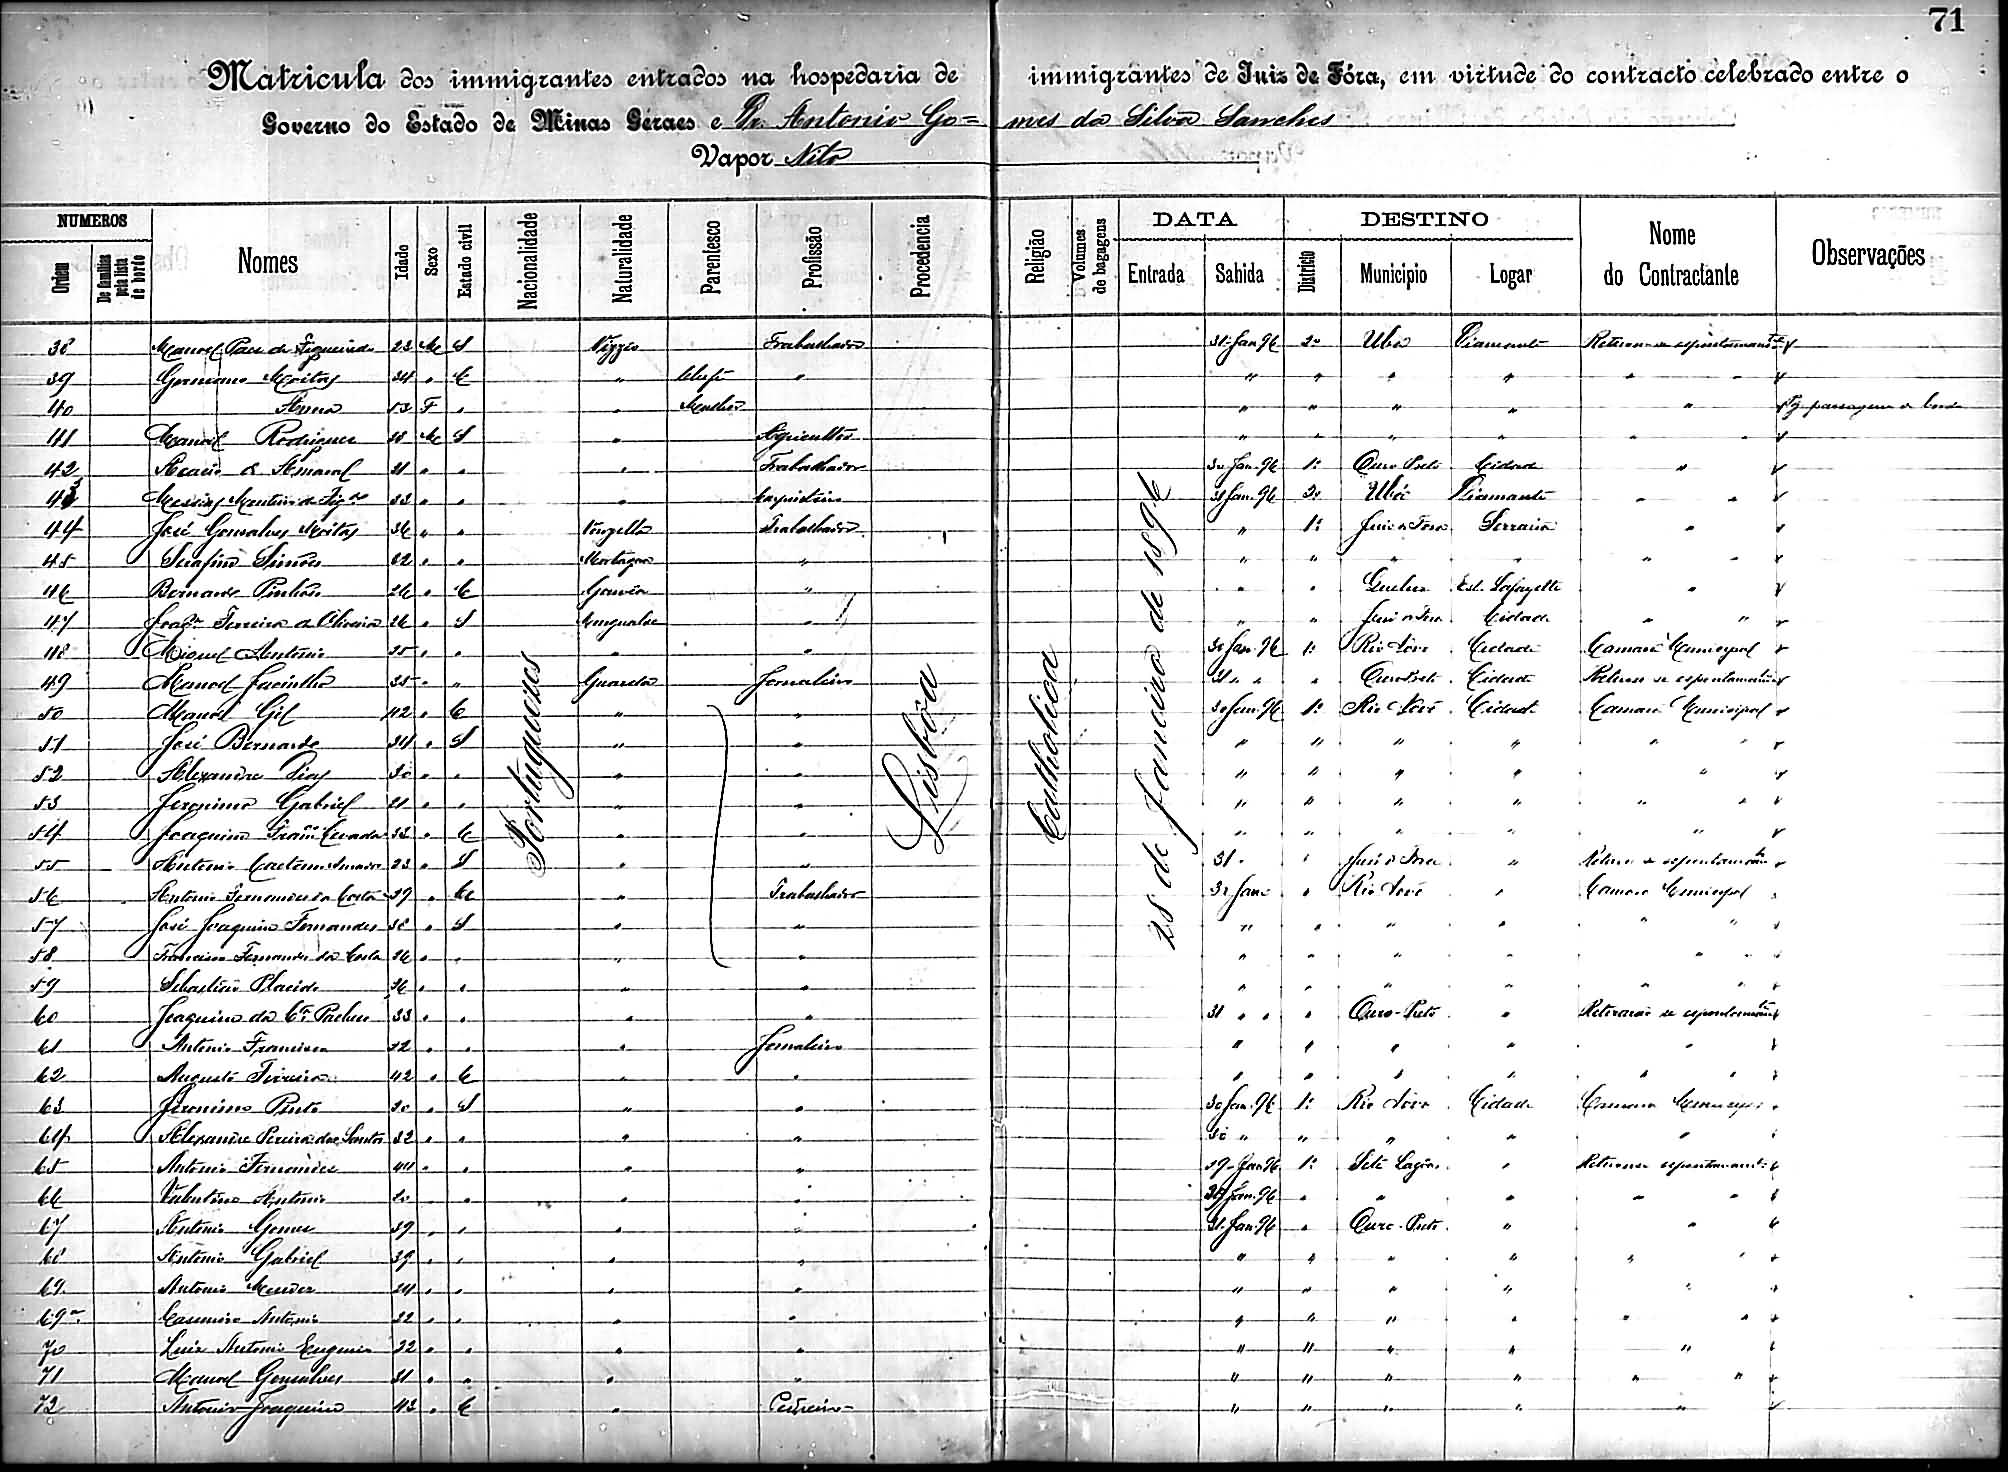 71
Matricula dos immigrantes entrados na hospedaria de immigrantes de Juiz de Fóra, em virtude do contracto celebrado entre o
Governo do Estado de Minas Geraes e Dr. Antonio Gomes da Silva Sanches
Vapor Nilo
NUMEROS DATA DESTINO
Ordem De familia pela lista de bordo Nomes Idade Sexo Estado civil Nacionalidade Naturalidade Parentesco Profissão Procedencia Religião Volumes de bagagens Entrada Sahida Districto Municipio Logar Nome do Contractante Observações
Portuguezes Lisbôa Catholica 28 de Janeiro de 1896
38 Manoel Paes de Figueiredo 23 M S Trabalhador 31 Jan 96 2º Ubá Diamante
39 Germano Moitas 34 " C " Chefe " " " " "
40 Anna 53 F " " Mulher " " " "
41 Manoel Rodrigues M S " Agricultor " " " "
42 Amaral 31 " " " Trabalhador 30 Jan. 96 1º Ouro Preto Cidade "
43 Messias Monteiro de Figdo 33 " " " Carpinteiro 31 Jan. 96 2º Ubá Diamante " "
44 José Gonsalves Moitas 36 " " Vouzella Trabalhador " 1º Juiz de Fora Serraria "
45 Serafim Simões " " Mortagoa " " " " " " "
46 Bernardo Pinhão 26 " C Gouvêa " " " Queluz Est. Lafayette "
47 Joaqm Ferreira de Oliveira 26 " S Mangualde " " " Juiz de Fora Cidade " "
48 Miguel Antonio 25 " " " " 30 Jan. 96 1º Rio Novo Cidade Camara Municipal
49 Manoel Jacintho 35 " " Guarda Jornaleiro 31 " " " Ouro Preto Cidade
50 Manoel Gil 42 " C " " 30 Jan. 96 1º Rio Novo Cidade Camara Municipal
51 José Bernardo 34 " S " " " " " " " "
52 Alexandre Dias 30 " " " " " " " " "
53 Jeronimo Gabriel 21 " " " " " " " " " "
54 Joaquim 33 " C " " " " " " "
55 Antonio Caetano Amador 23 " S " " 31 " " Juiz de Fora "
56 Antonio Fernandes da Costa 39 " C " Trabalhador 30 Jan " Rio Novo " Camara Municipal
57 José Joaquim Fernandes 38 " S " " " " " " " "
58 Francisco Fernandes da Costa 26 " " " " " " " " " "
59 Sebastião Placido 36 " " " " " " " " " "
60 Joaquim da 33 " " " " 31 " " " Ouro-Preto "
61 Antonio Francisco 32 " " " Jornaleiro " " " " "
62 Augusto 42 " C " " " " " " " "
63 Jeronimo Pinto 30 " S " " 30 Jan. 96 1º Rio Novo Cidade Camara Municipal
64 Alexandre Pereira dos Santos 32 " " " " 30 " " " " "
65 Antonio Fernandes " " " " 29 Jan 96 1º Sete Lagôas "
66 Valentino Antonio 20 " " " " Jan. 96 " " " " "
67 Antonio Gomes 39 " " " " 31 Jan. 96 " Ouro-Preto " "
68 Antonio Gabriel 39 " " " " " " " " " "
69 Antonio Mendes 24 " " " " " " " " "
69a Casimiro Antonio 22 " " " " " " " " " "
70 Luiz Antonio Eugenio 22 " " " " " " " " "
71 Manoel Gonsalves 31 " " " " " " " " " "
72 Antonio Joaquim 43 " C " " " " " "